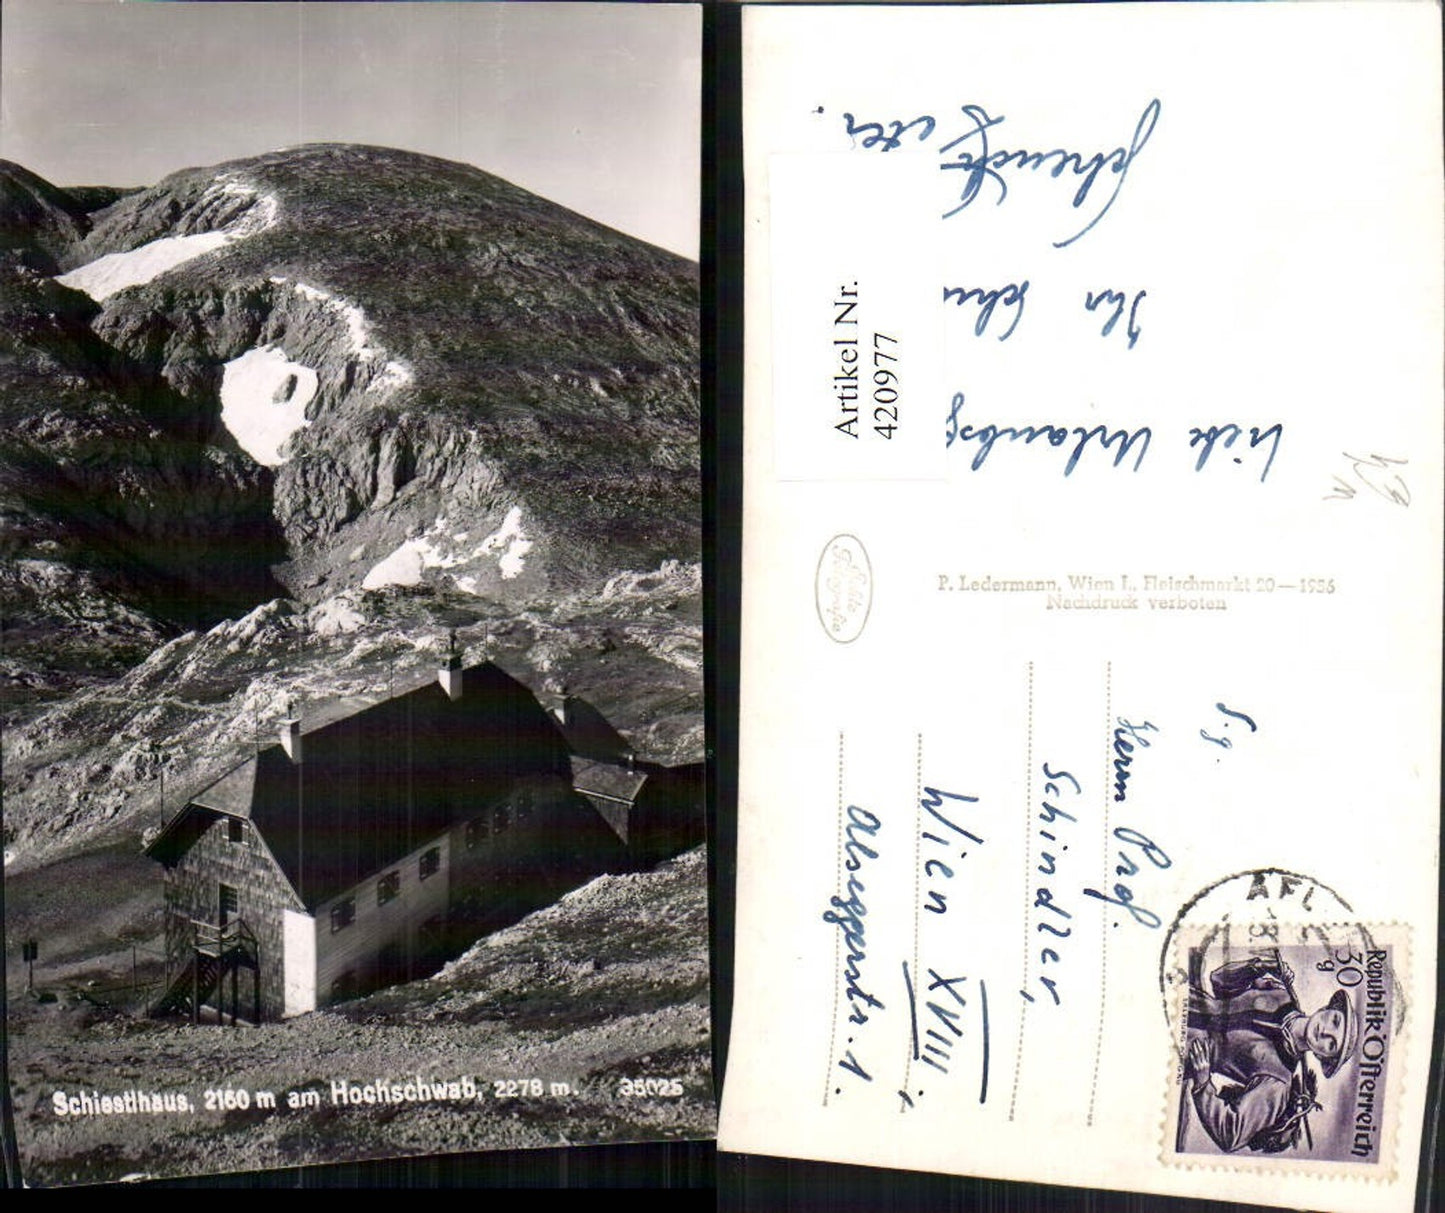 Schiestlhaus, 2160 m am Hochschwab, 2278 m. 35025
Artikel Nr.
420977
Urlaubsg
Ihr
P. Ledermann, Wien I., Fleischmarkt 20—1956
Nachdruck verboten
Echte
S.g.
Herrn Prof.
Schindler,
Wien XVIII.,
Alseggerstr. 1.
AFL
Republik Österreich
30 g